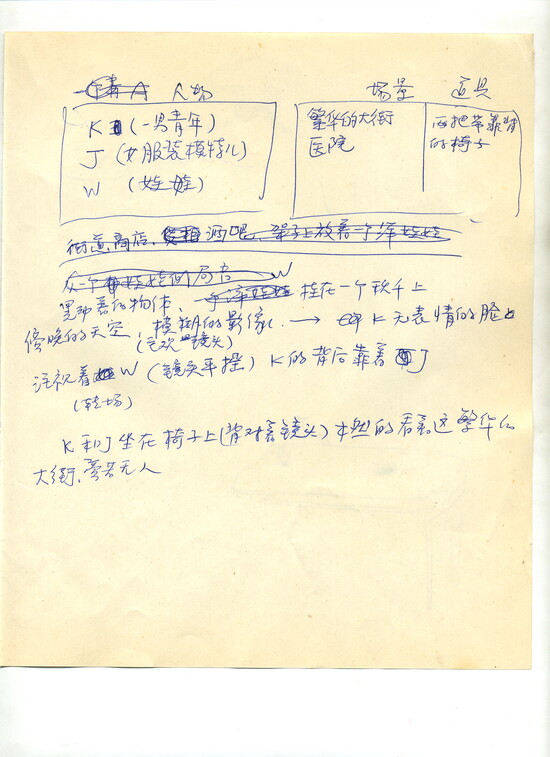 人物 场景 道具
K (一男青年) 繁华的大街 两把带靠背
J (女服装模特儿) 医院 的椅子
W (娃娃)
街道,商店, 酒吧、桌子上放着一个洋娃娃
从一个娃娃的局部 W
晃动着的物体、 挂在一个秋千上
傍晚的天空、模糊的影像、→ K无表情的脸
(主观镜头)
注视着 W (镜头平摇) K的背后靠着 J
(转场)
K和J坐在椅子上(背对着镜头)木然的看着这繁华的
大街,旁若无人